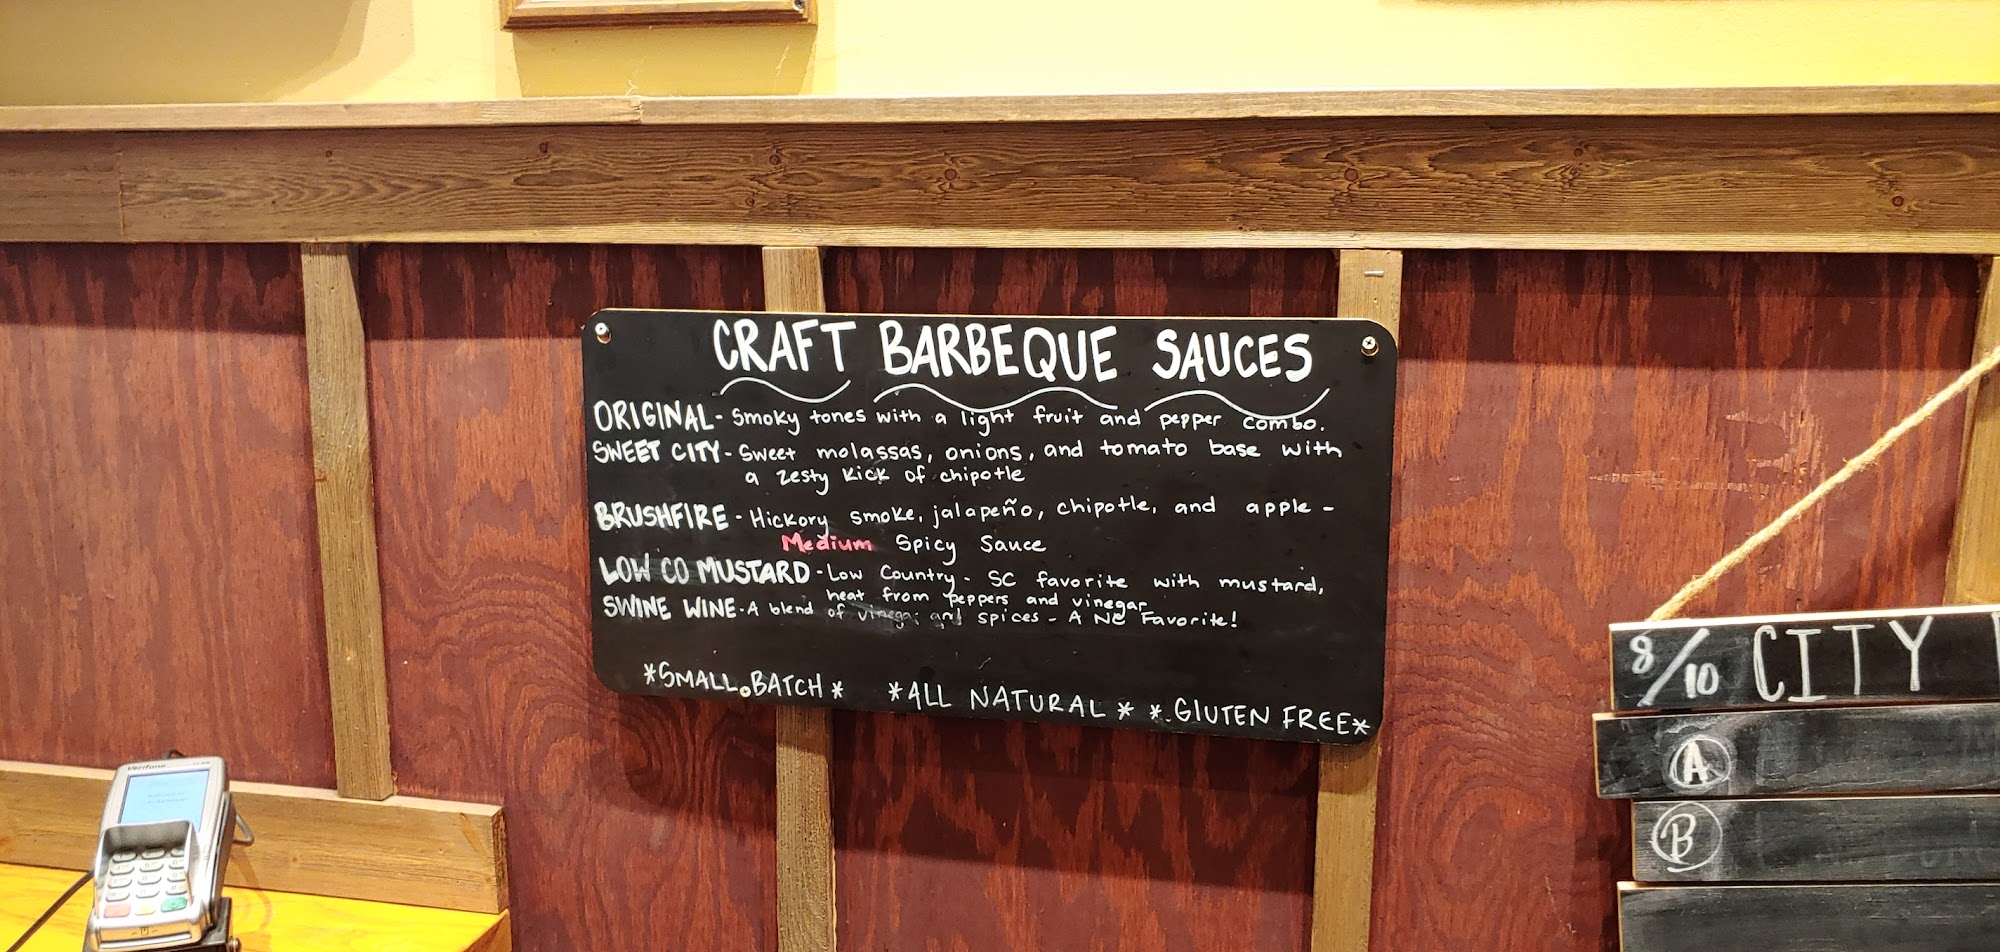 CRAFT BARBEQUE SAUCES
ORIGINAL - Smoky tones with a light fruit and pepper combo.
SWEET CITY - Sweet molassas, onions, and tomato base with
a zesty kick of chipotle
BRUSHFIRE - Hickory smoke, jalapeño, chipotle, and apple -
Medium Spicy Sauce
LOW CO MUSTARD - Low Country - SC favorite with mustard,
heat from peppers and vinegar
SWINE WINE - A blend of vinegar and spices - A NC Favorite!
*SMALL BATCH* *ALL NATURAL* *GLUTEN FREE*
8/10 CITY
A
B
Verifone